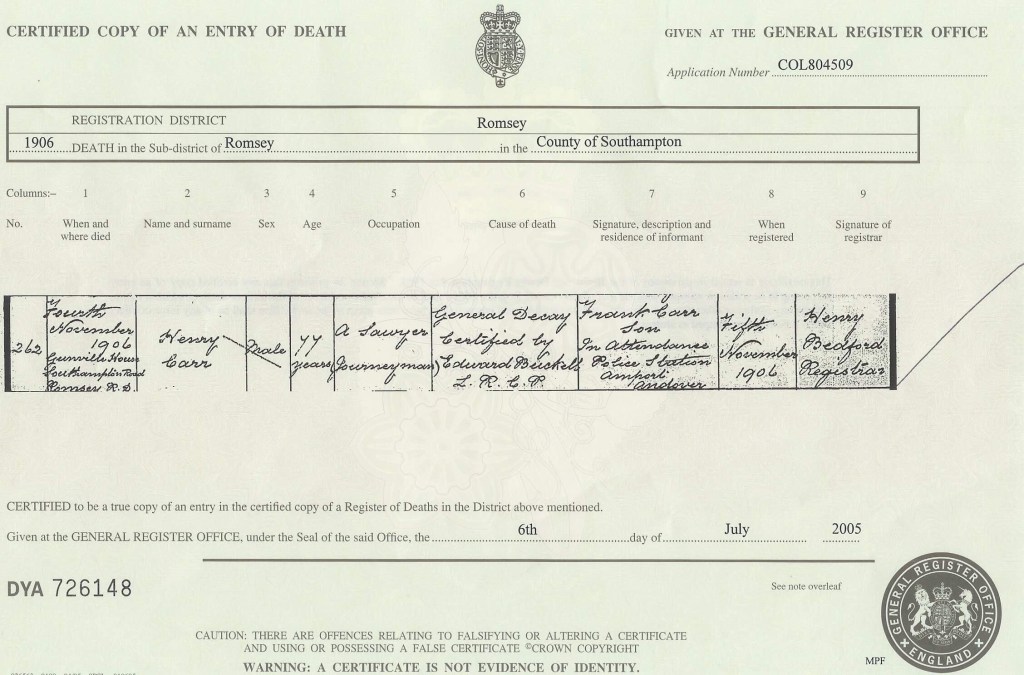 CERTIFIED COPY OF AN ENTRY OF DEATH
GIVEN AT THE GENERAL REGISTER OFFICE
Application Number COL804509
REGISTRATION DISTRICT Romsey
1906 DEATH in the Sub-district of Romsey in the County of Southampton
Columns:– 1 2 3 4 5 6 7 8 9
No. When and where died Name and surname Sex Age Occupation Cause of death Signature, description and residence of informant When registered Signature of registrar
262
Fourth
November
1906
House
Southampton Road
Romsey R.D.
Henry
Carr
Male
77
years
A Sawyer
(Journeyman)
General Decay
Certified by
Edward Buckell
L.R.C.P.
Frank Carr
Son
In Attendance
Police Station
Amport
Andover
Fifth
November
1906
Henry
Bedford
Registrar
CERTIFIED to be a true copy of an entry in the certified copy of a Register of Deaths in the District above mentioned.
Given at the GENERAL REGISTER OFFICE, under the Seal of the said Office, the 6th day of July 2005
DYA 726148
See note overleaf
GENERAL REGISTER OFFICE
ENGLAND
CAUTION: THERE ARE OFFENCES RELATING TO FALSIFYING OR ALTERING A CERTIFICATE
AND USING OR POSSESSING A FALSE CERTIFICATE ©CROWN COPYRIGHT
WARNING: A CERTIFICATE IS NOT EVIDENCE OF IDENTITY.
MPF